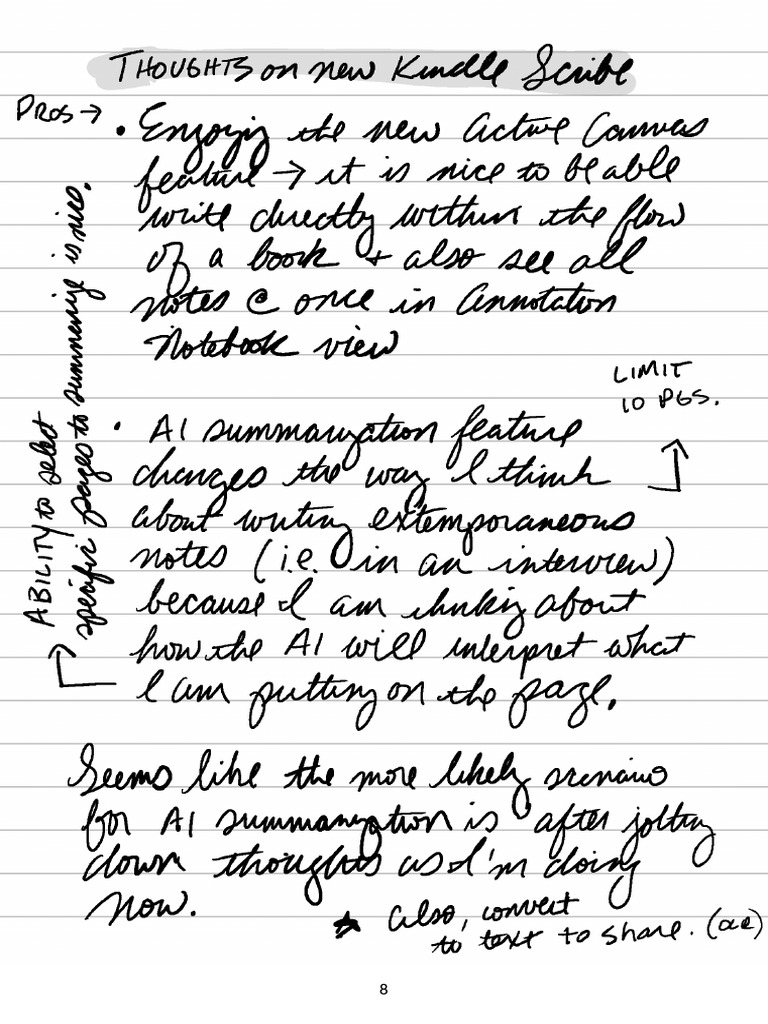 THOUGHTS on new Kindle Scribe
PROS →
• Enjoying the new Active Canvas
feature → it is nice to be able
write directly within the flow
of a book + also see all
notes @ once in Annotation
Notebook view
LIMIT
10 PGS.
• AI summarization feature
changes the way I think
about writing extemporaneous
notes (i.e. in an interview)
because I am thinking about
how the AI will interpret what
I am putting on the page.
ABILITY to select
specific pages to summarize is nice.
Seems like the more likely scenario
for AI summarization is after jotting
down thoughts as I'm doing
now.
★ also, convert
to text to share.
8